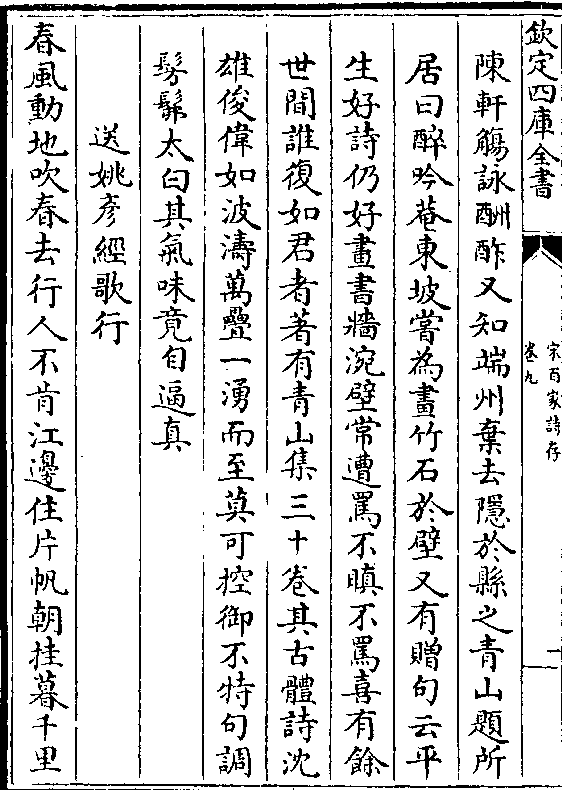 欽定四庫全書
宋百家詩存
卷九
陳軒觴詠酬酢又知端州棄去隱於縣之青山題所
居曰醉吟菴東坡嘗為畫竹石於壁又有贈句云平
生好詩仍好畫書牆涴壁常遭罵不瞋不罵喜有餘
世間誰復如君者著有青山集三十卷其古體詩沈
雄俊偉如波濤萬疊一湧而至莫可控御不特句調
髣髴太白其氣味竟自逼真
送姚彥經歌行
春風動地吹春去行人不肯江邊住片帆朝挂暮千里